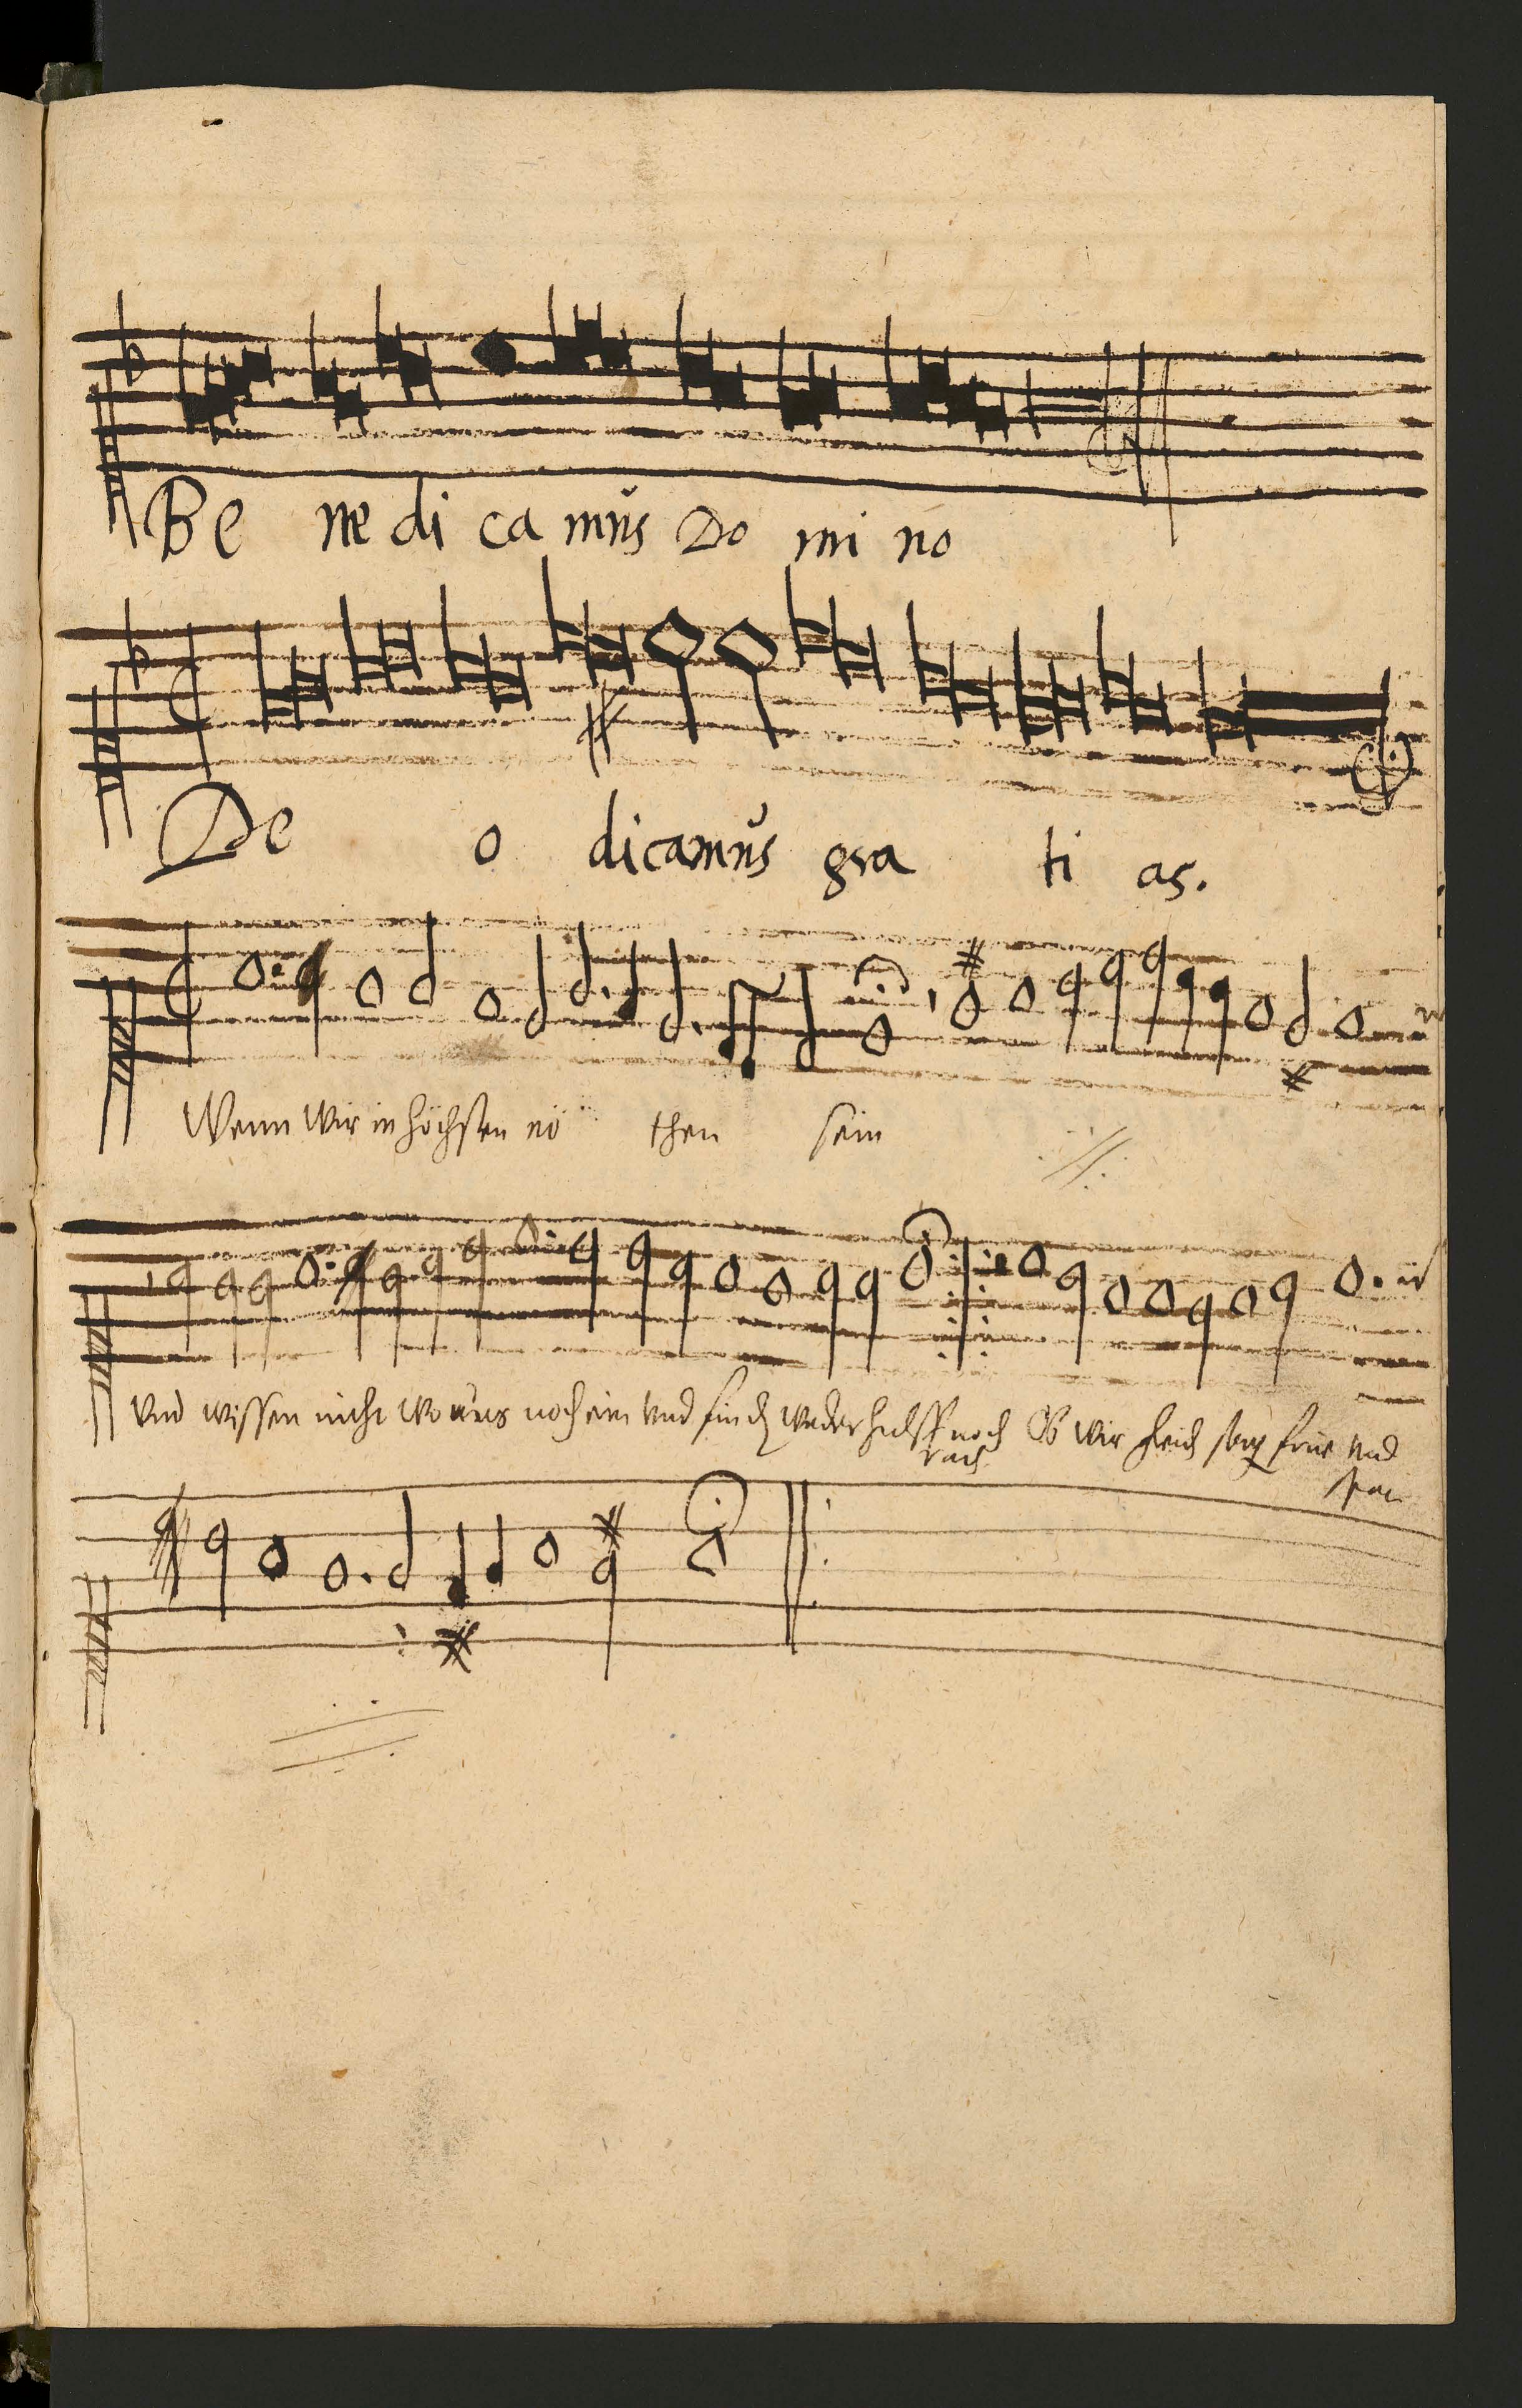 Be ne di ca mus Do mi no
De o dicamus gra ti as.
Wenn wir in höchsten nö then sein
Und wissen nicht wo aus noch ein Und finden weder hulff noch
rath
Ob wir gleich sorgen frue und
spat